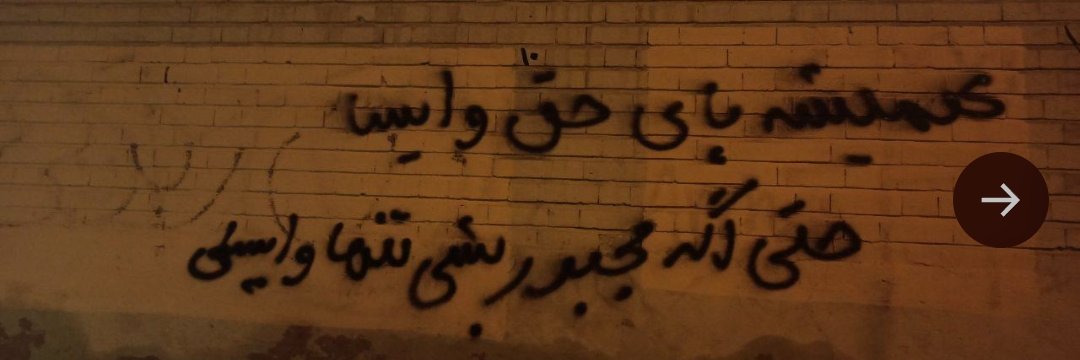 همیشه پای حق وایسا
حتی اگه مجبور بشی تنها وایسی